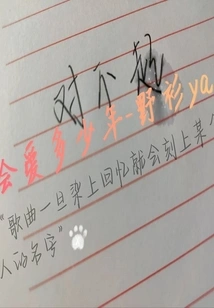 对不起
会爱多少年-野衫ya
“歌曲一旦染上回忆就会刻上某个
人的名字”